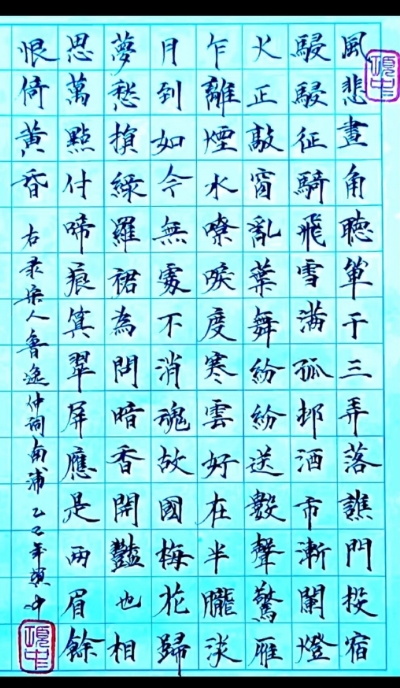 風悲畫角聽單于三弄落譙門投宿
駸駸征騎飛雪滿孤邨酒市漸闌燈
火正敲窗亂葉舞紛紛送數聲驚雁
乍離煙水嘹唳度寒雲好在半朧淡
月到如今無處不消魂故國梅花歸
夢愁損綠羅裙為問暗香開豔也相
思萬點付啼痕算翠屏應是兩眉餘
恨倚黃昏 右录宋人魯逸仲詞南浦乙巳年項中
項中
項中